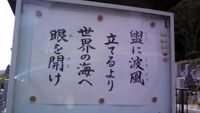 盥に波風
立てるより
世界の海へ
眼を開け